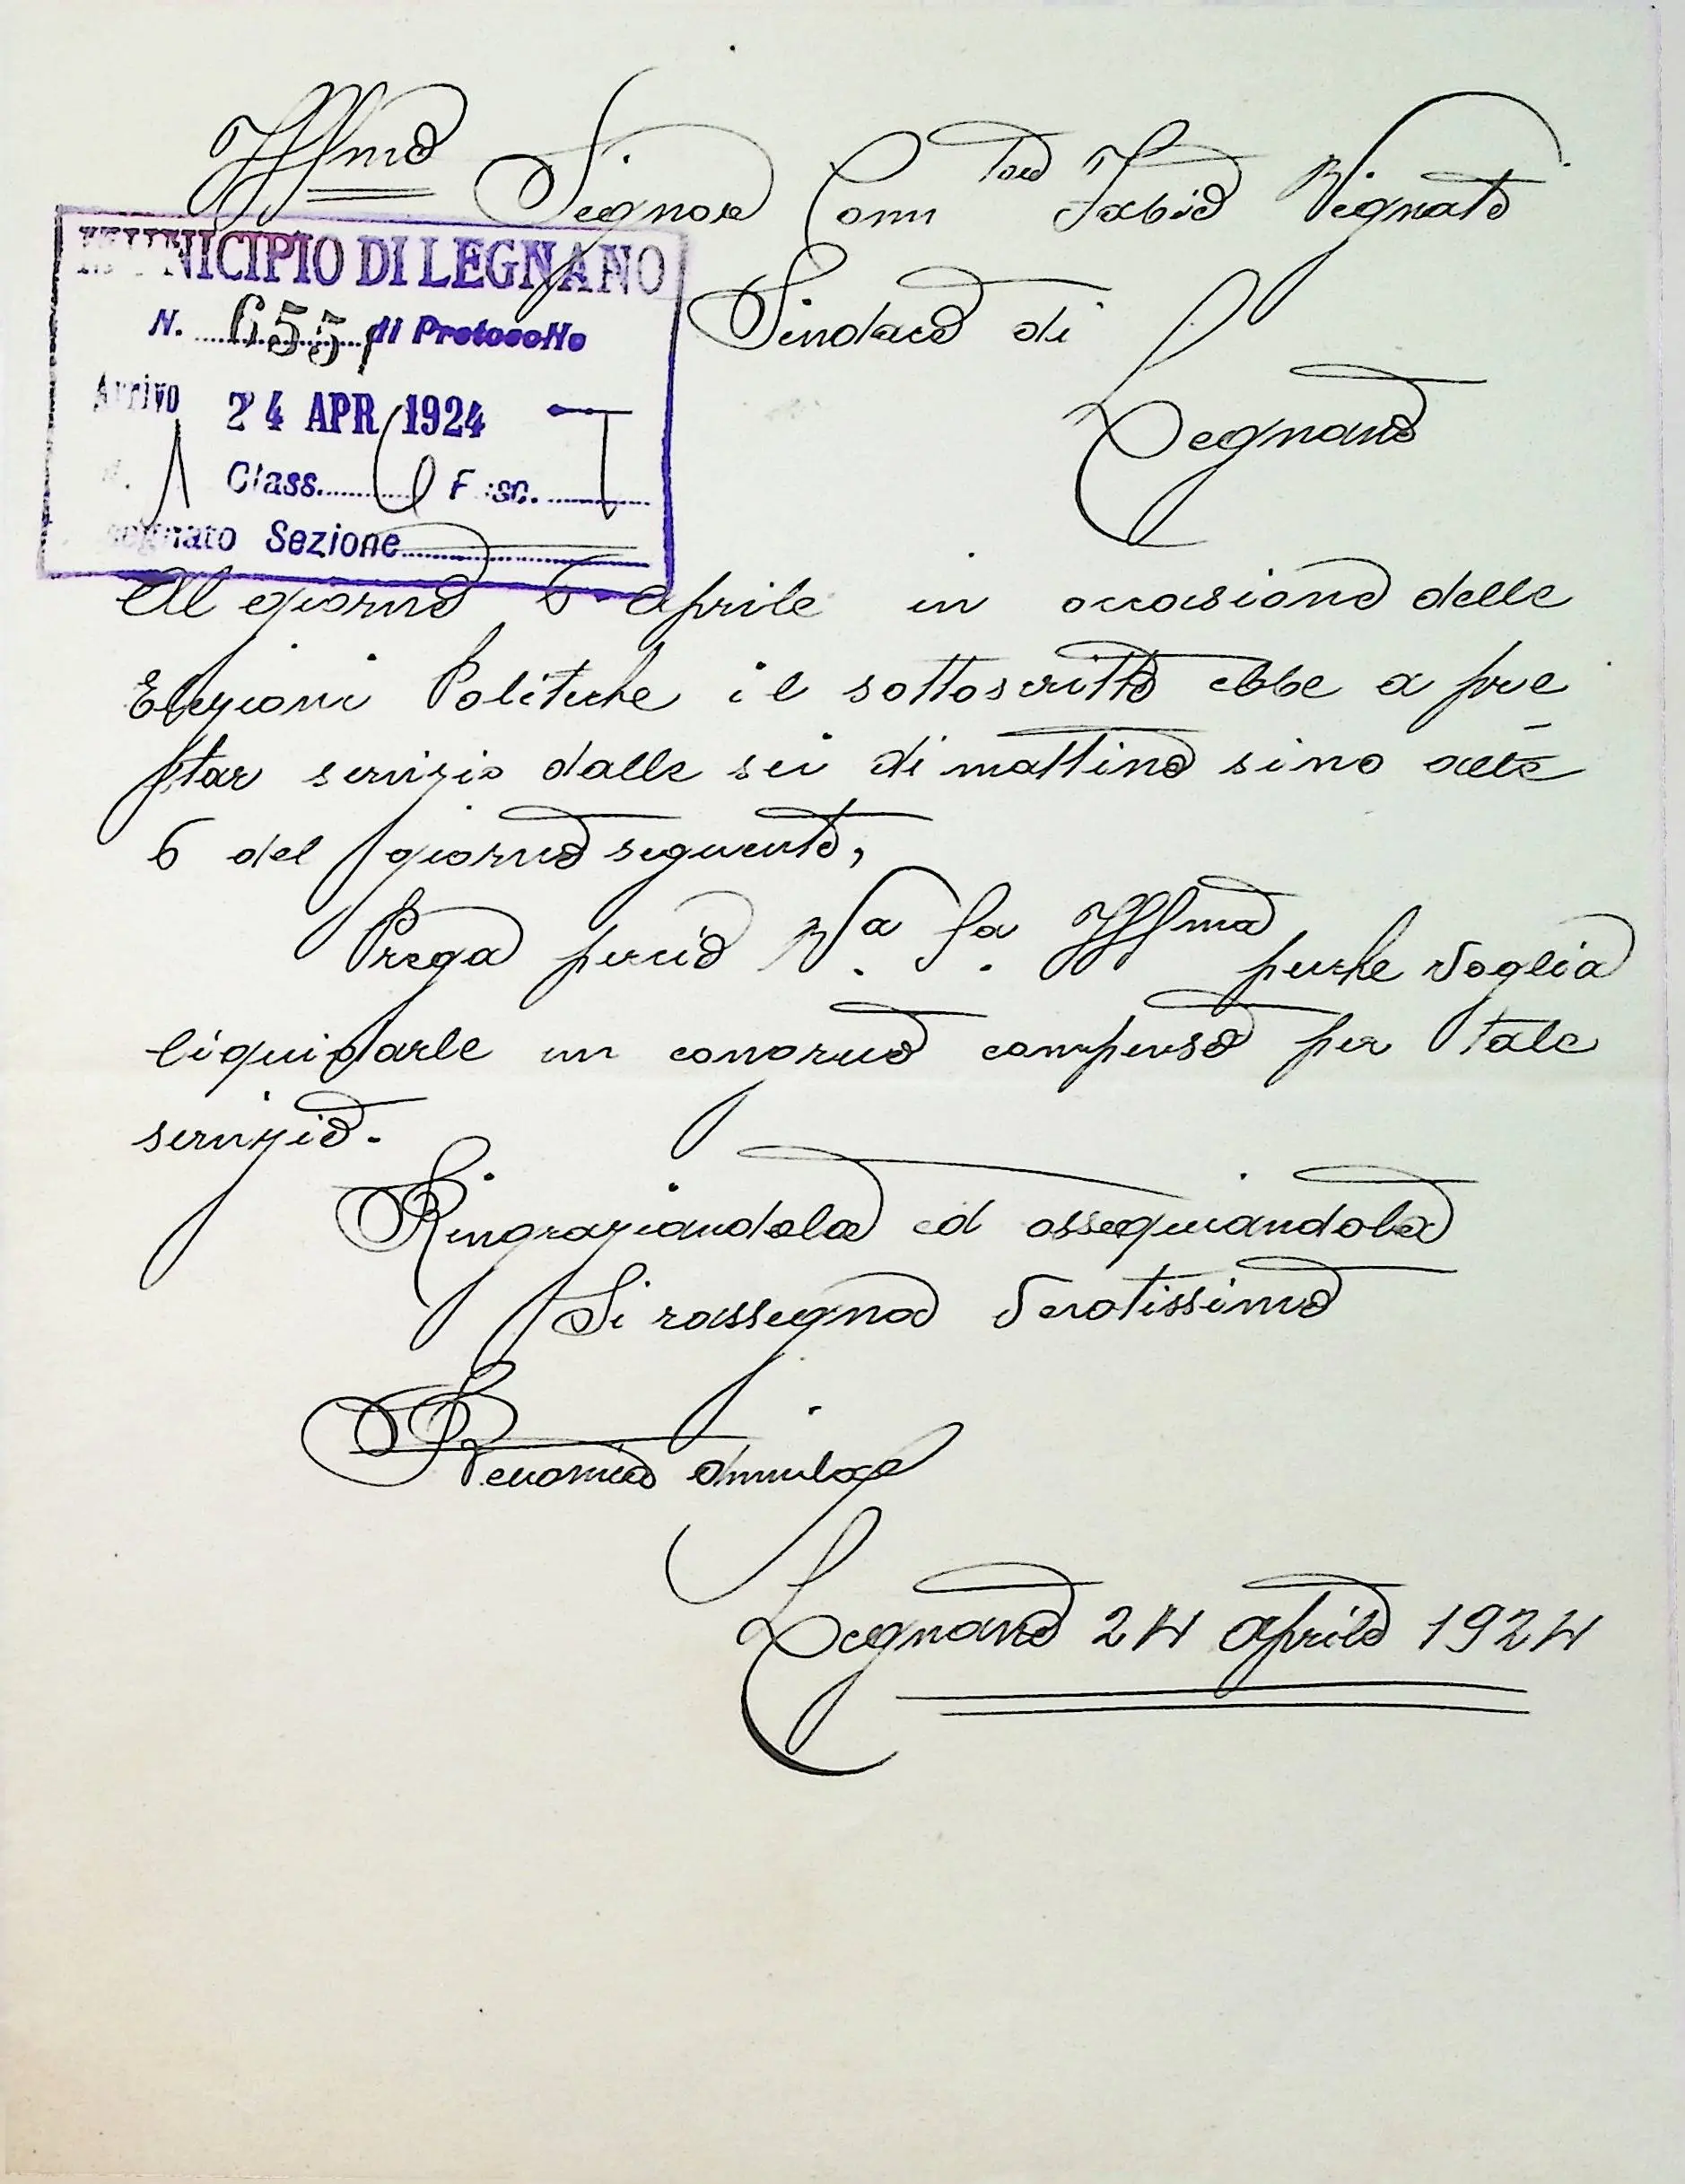 Illmo Signore Comm tore Fabio Vignati
MUNICIPIO DI LEGNANO
N. 6551 di Protocollo
Sindaco di
Legnano
Arrivo 24 APR 1924
Class. Fasc.
Sezione
Al giorno 6 Aprile in occasione delle
Elezioni Politiche il sottoscritto ebbe a pre
star servizio dalle sei di mattino sino alle
6 del giorno seguente,
Prega perciò Va. Sa. Illma perche voglia
liquidarle un congruo compenso per tale
servizio.
Ringraziandola ed ossequiandola
Si rassegna Devotissimo
Legnano 24 Aprile 1924